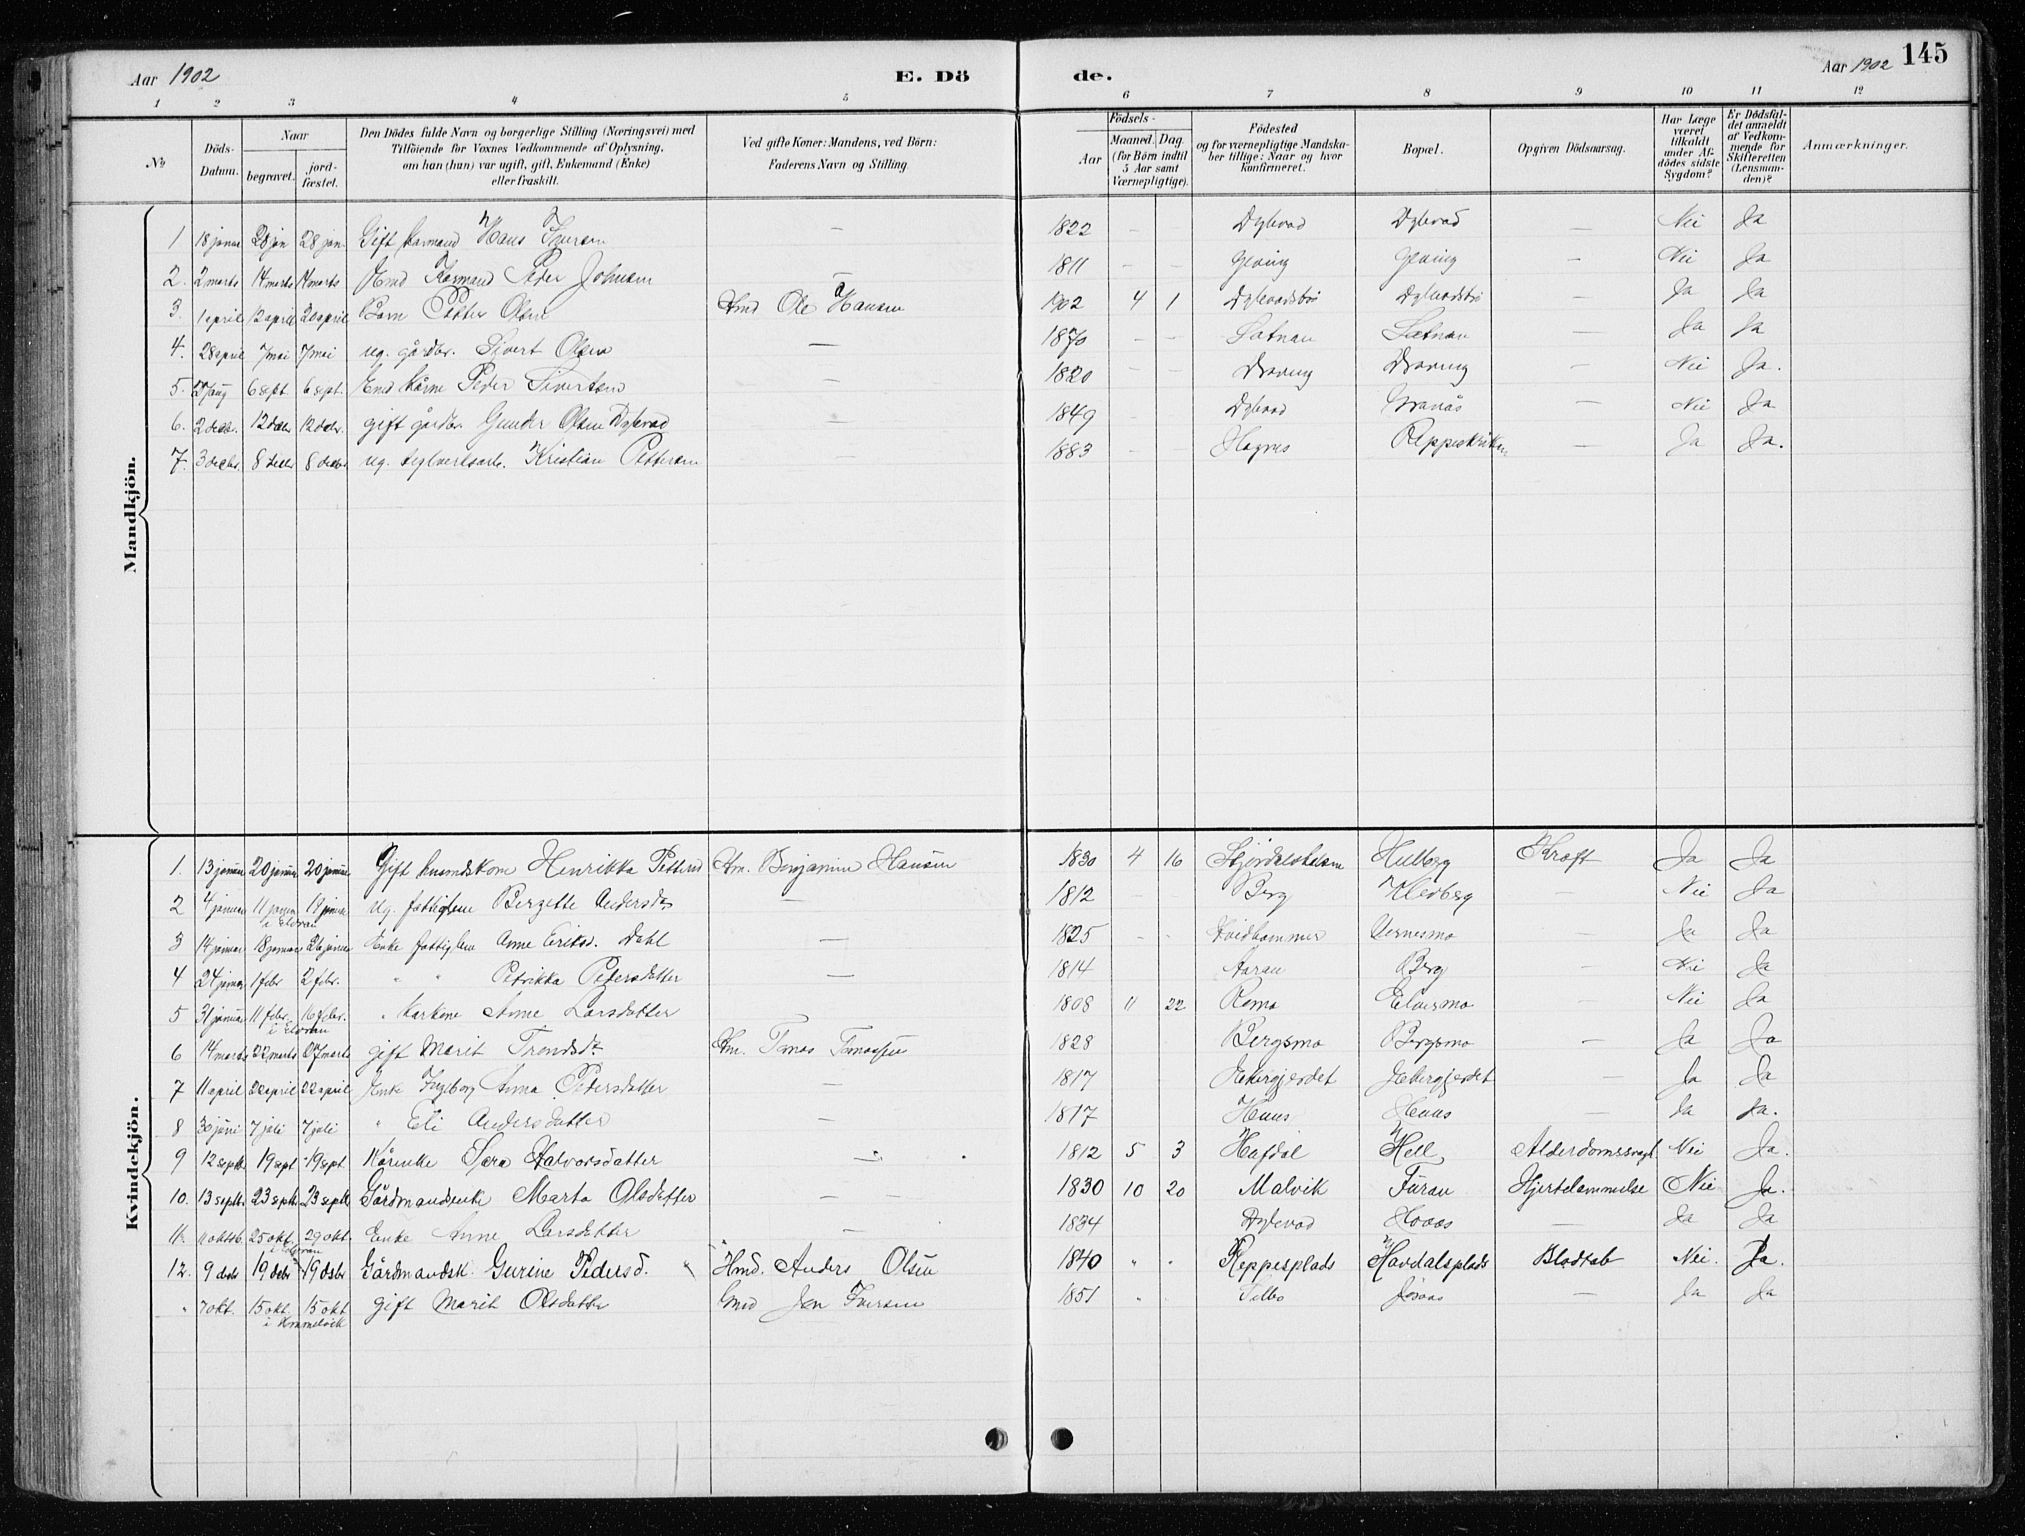 Aar 1902 E. Dö de. Aar 1902 145
1 2 3 4 5 6 7 8 9 10 11 12
No
Döds-Datum.
Naar
begravet.
jord-fæstet.
Den Dödes fulde Navn og borgerlige Stilling (Næringsvei) med
Tilföiende for Voxnes Vedkommende af Oplysning,
om han (hun) var ugift, gift, Enkemand (Enke)
eller fraskilt.
Ved gifte Koner: Mandens, ved Börn:
Faderens Navn og Stilling
Födsels-
Aar
Maaned. Dag.
(for Børn indtil
5 Aar samt
Værnepligtige).
Födested
og for værnepligtige Mandska-
ber tillige: Naar og hvor
konfirmeret.
Bopæl.
Opgiven Dödsaarsag.
Har Læge
været
tilkaldt
under Af-
dödes sidste
Sygdom?
Er Dödsfal-
det anmeldt
af Vedkom-
mende for
Skifteretten
(Lensman-
den)?
Anmærkninger.
Mandkjön.
1 18 januar 28 jan 28 jan. Gift Karmand Hans Iversen — 1822 — — Dylevad Dylevad — Nei Ja
2. 2 marts 14 marts 14 marts Emd Karmand Peder Johnsen — 1811 — — Geving Geving — Nei Ja
3. 1 april 12 april 20 april Barn Petter Olsen Hmd Ole Hansen 1902 4 1 Dylevadsbø Dylevadsbø — Ja Ja
4. 28 april 7 mai 7 mai ug. gårdbr. Sivert Olsen — 1870 — — Sætnan Sætnan — Ja Ja
5. 27 aug 6 sept 6 sept. Emd kårm. Peder Sivertsen — 1820 — — Draving Draving — Nei Ja.
6. 2 decbr. 12 decbr 12 decbr. gift gårdbr. Gunder Olsen Dylevad — 1849 — Dylevad Granås — Nei Ja
7. 3 decbr. 8 decbr 8 decbr ug. teglverksarb. Kristian Pettersen — 1883 — — Hognes — Ja Ja.
Kvindekjön.
1. 13 januar 20 januar 20 januar Gift husmdskone Henrikka Hm. Benjamin Hansen 1830 4 16 Stjørdalshalsen Hellberg Kræft Ja Ja
2 4 januar 11 januar 19 januar Ug. fattiglem Bergitte Andersdt — 1812 — Berg Hledberg — Nei Ja
i Elvran
3 14 januar 18 januar 26 januar Enke fattiglem Anne Eriksd. Dahl — 1825 - - Hvidhammer Værnesmo Ja Ja
4 24 januar 1 febr 2 febr. " " Petrikka Pedersdatter — 1814 Aaran Berg — Nei Ja
5 31 januar 11 febr. 16 febr. " karkone Anne Larsdatter 1808 11 22 Romo Elvesmo Nei Ja
i Elvran
6 14 marts 22 marts 27 marts gift Marit Trondsdt Hm. Tomas Tomassen 1828 Bergsmo Bergsmo — Ja Ja
7 11 april 22 april 22 april Enke Ingeborg Anna Pedersdatter — 1817 Jæbergjerdet Jæbergjerdet — Ja Ja
8 30 juni 7 juli 7 juli " Eli Andersdatter — 1817 Huus Huus — Ja Ja.
9 12 septb 19 sept 19 sept. Kårenke Sara Halvorsdatter — 1812 5 3 Hafdal Hell Alderdomssvagh. Nei Ja.
10. 13 septb. 23 septb 23 septb Gårdmandsenke Marta Olsdatter — 1830 10 20 Malvik Furan Hjertelammelse Nei Ja.
11. 11 oktb. 25 okt. 29 okt. Enke Anne Larsdatter — 1834 Dylevad Hoaas — Ja Ja
i Elvran
12. 9 decbr 19 decbr 19 decbr Gårdmandsk. Gurine Pedersd. " Hmd. Anders Olsen 1840 " " Reppesplads Havdalsplads Blodtab Nei. Ja.
" 7 okt. 15 okt. 15 okt gift Marit Olsdatter Gmd Jon Iversen 1851 " Ja Ja